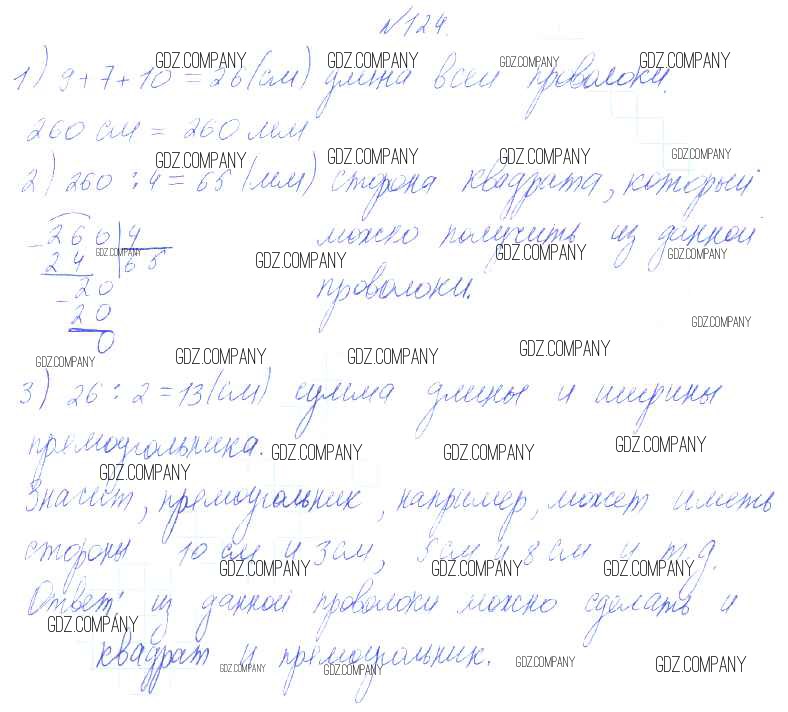 №124.
1) 9+7+10 = 26 (см) длина всей проволоки.
260 см = 260 мм
2) 260 : 4 = 65 (мм) сторона квадрата, который
можно получить из данной
проволоки.
- 260 | 4
24 | 65
- 20
20
0
3) 26 : 2 = 13 (см) сумма длины и ширины
прямоугольника.
Значит, прямоугольник, например, может иметь
стороны 10 см и 3 см, 5 см и 8 см и т.д.
Ответ: из данной проволоки можно сделать и
квадрат и прямоугольник.
GDZ.COMPANY GDZ.COMPANY GDZ.COMPANY GDZ.COMPANY
GDZ.COMPANY GDZ.COMPANY GDZ.COMPANY GDZ.COMPANY
GDZ.COMPANY GDZ.COMPANY GDZ.COMPANY GDZ.COMPANY
GDZ.COMPANY
GDZ.COMPANY GDZ.COMPANY GDZ.COMPANY GDZ.COMPANY
GDZ.COMPANY GDZ.COMPANY GDZ.COMPANY GDZ.COMPANY
GDZ.COMPANY GDZ.COMPANY GDZ.COMPANY
GDZ.COMPANY
GDZ.COMPANY GDZ.COMPANY GDZ.COMPANY GDZ.COMPANY